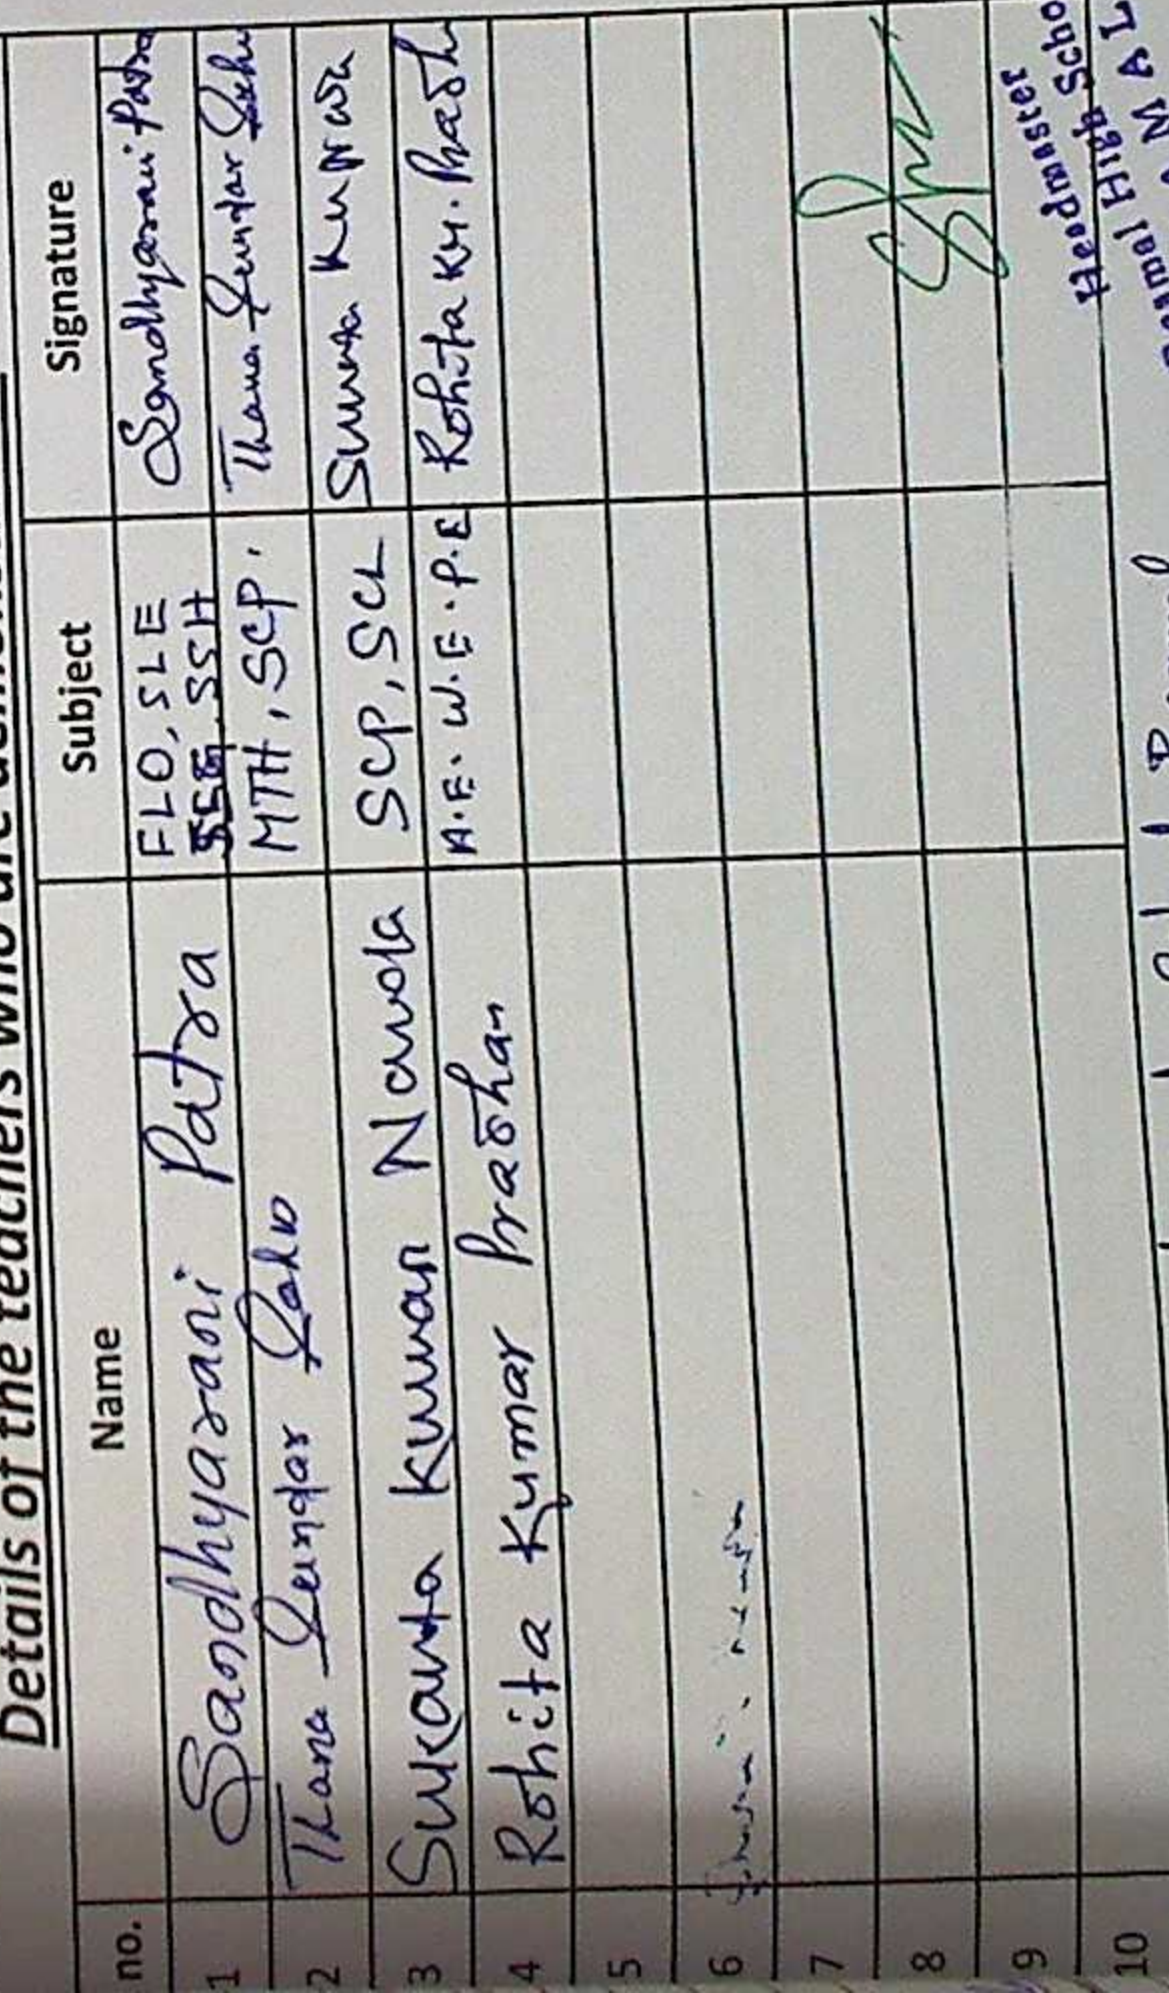 Details of the teachers who are
no. Name Subject Signature
1 Sandhyarani Patra FLO, SLE SSG, SSH Sandhyarani Patra
2 Thana Sundar Sahu MTH, SCP. Thana Sundar Sahu
3 Sukanta Kumar Nanda SCP, SCL
4 Rohita Kumar Pradhan A.E. W.E. P.E Rohita Kr. Pradh
5
6
7
8
9
10
Headmaster
High Scho